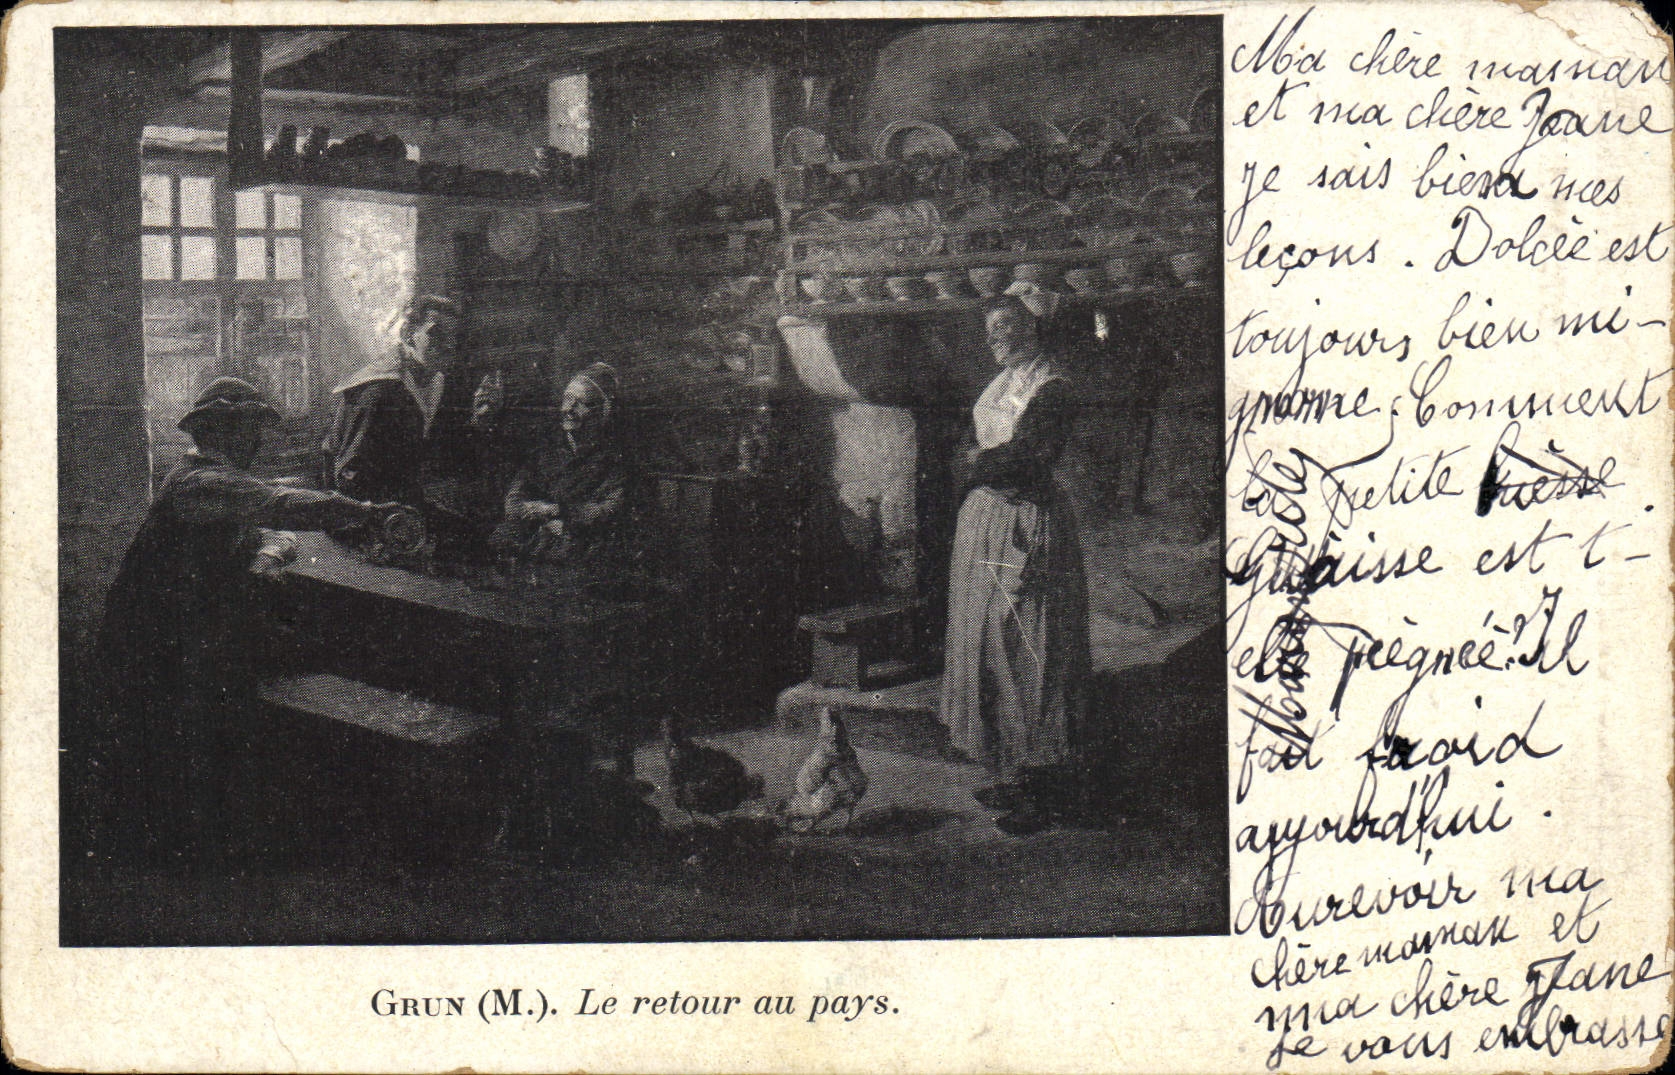 Ma chère maman
et ma chère Jeane
je sais bien mes
leçons. Dolcée est
toujours bien mi-
gnonne. Comment
la petite
est t-
elle peignée? Il
fait froid
aujourd'hui.
Aurevoir ma
chère maman et
ma chère Jane
Je vous embrasse
GRUN (M.). Le retour au pays.